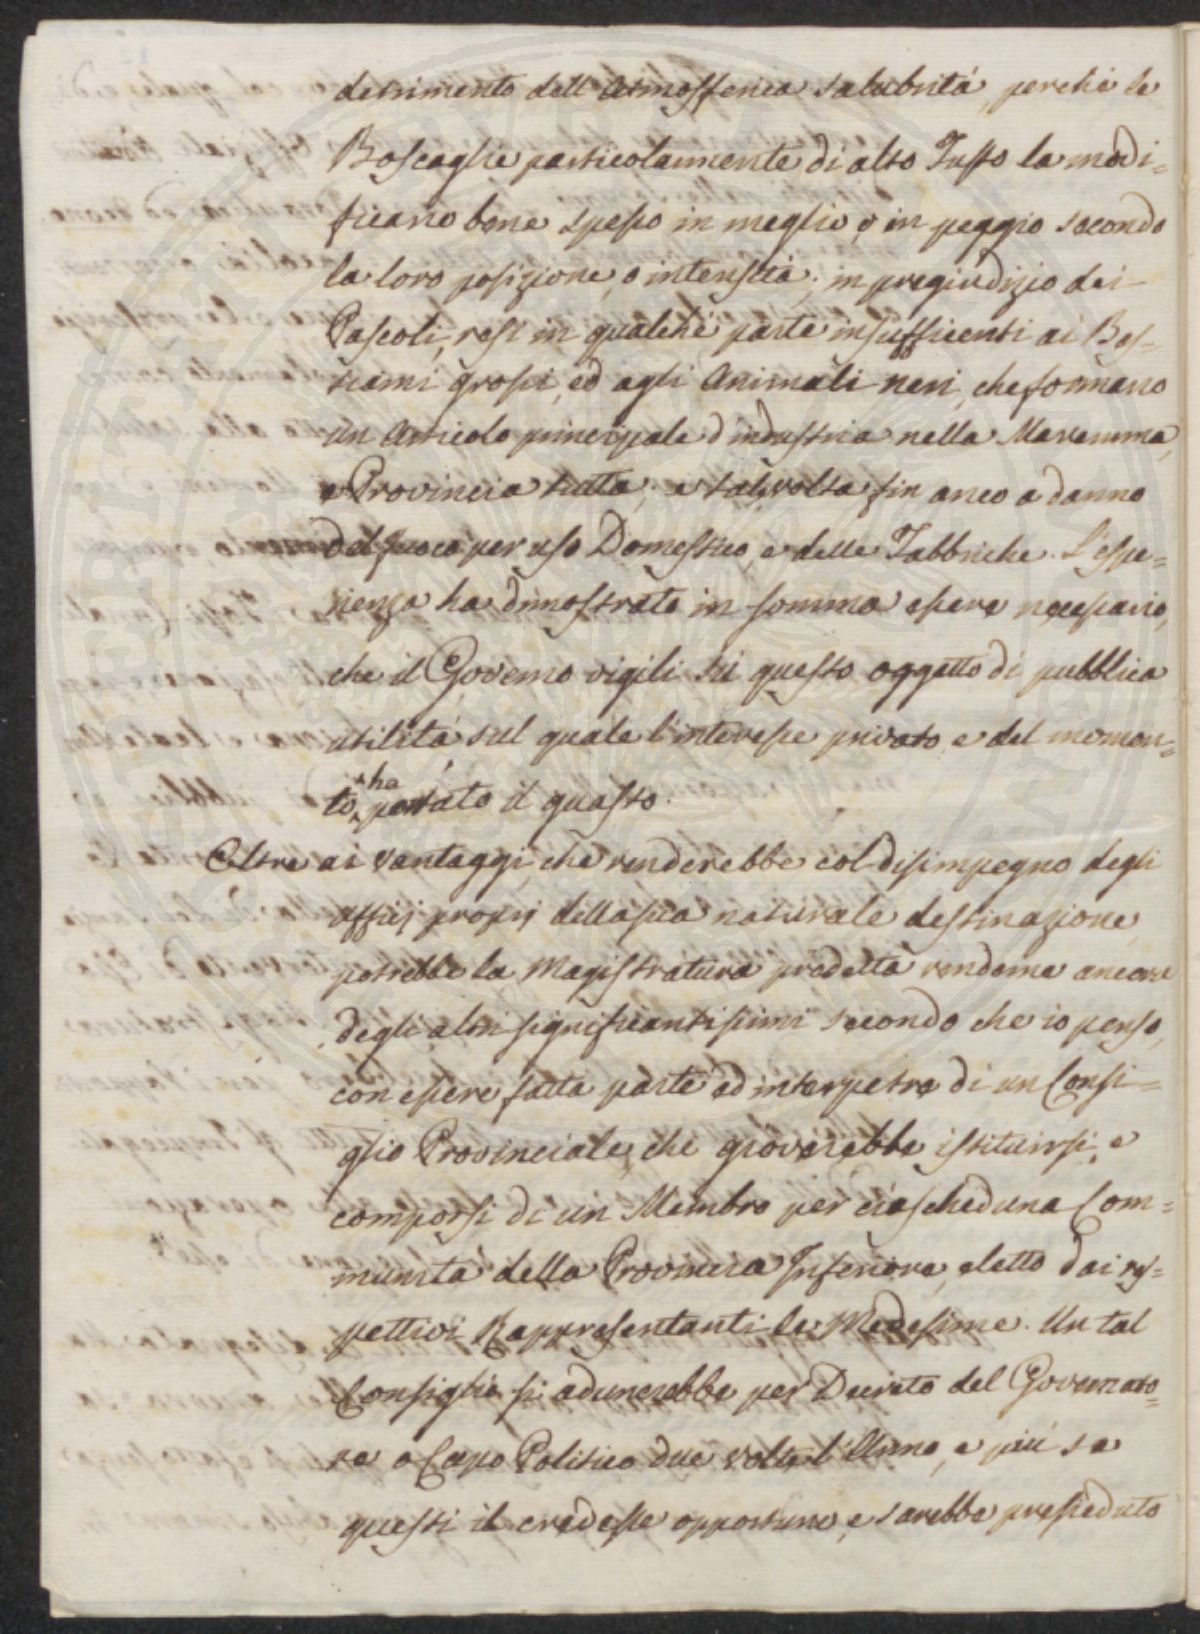 detrimento dell'Atmosfferica salubrità, perché le
Boscaglie particolarmente di alto Fusto la modi=
ficano bene spesso in meglio, o in peggio secondo
la loro posizione, o intensità; in pregiudizio dei
Pascoli, resi in qualché parte insufficenti ai Bes=
tiami grossi, ed agli Animali neri, che formano
un Articolo principale d'industria nella Maremma,
e Provincia tutta; e tal volta fin anco a danno
del fuoco per uso Domestico, e delle Fabbriche. L'espe=
rienza ha dimostrato in somma essere necessario,
che il Governo vigili su questo oggetto di pubblica
utilità sul quale l'interesse privato e del momen=
to ha portato il guasto.
Oltre ai vantaggi, che renderebbe col disimpegno degli
affici proprj della sua naturale destinazione
potrebbe la Magistratura predetta renderne ancora
degli altri significantissimi secondo che io penso,
con essere fatta parte ed interpetre di un Consi=
glio Provinciale, che gioverebbe istituirsi, e
comporsi di un Membro per ciascheduna Com=
munità della Provincia Inferiore, eletto dai res=
pettivi Rappresentanti le Medesime. Un tal
Consiglio si adunerebbe per Decreto del Governato=
re o Capo Politico due volte l'Anno, e più se
questi il credesse opportuno, e sarebbe presieduto